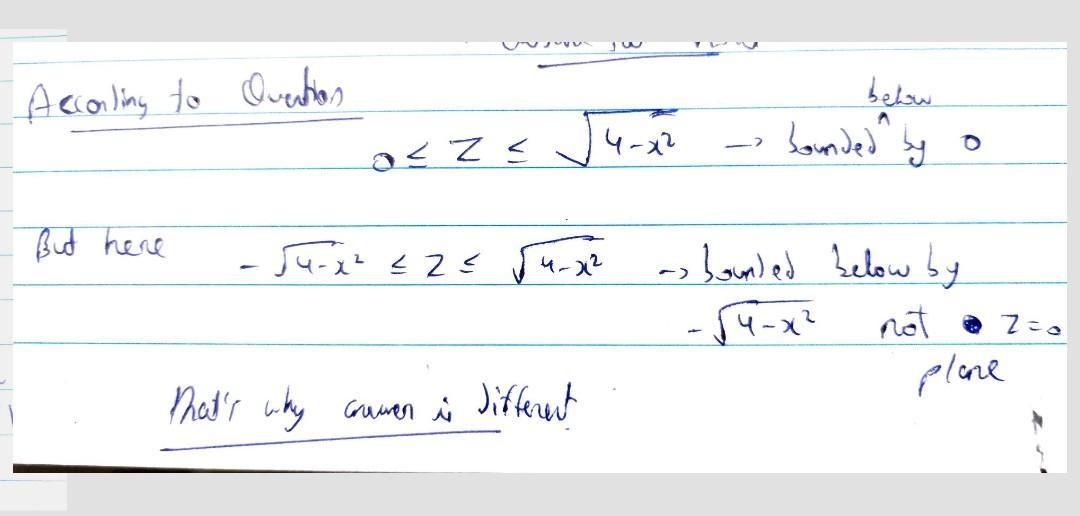 According to Question
below
0 ≤ Z ≤ √4-x² → bounded ^ by 0
But here -√4-x² ≤ Z ≤ √4-x² → bounded below by
-√4-x² not Z=0
plane
That's why answer is different